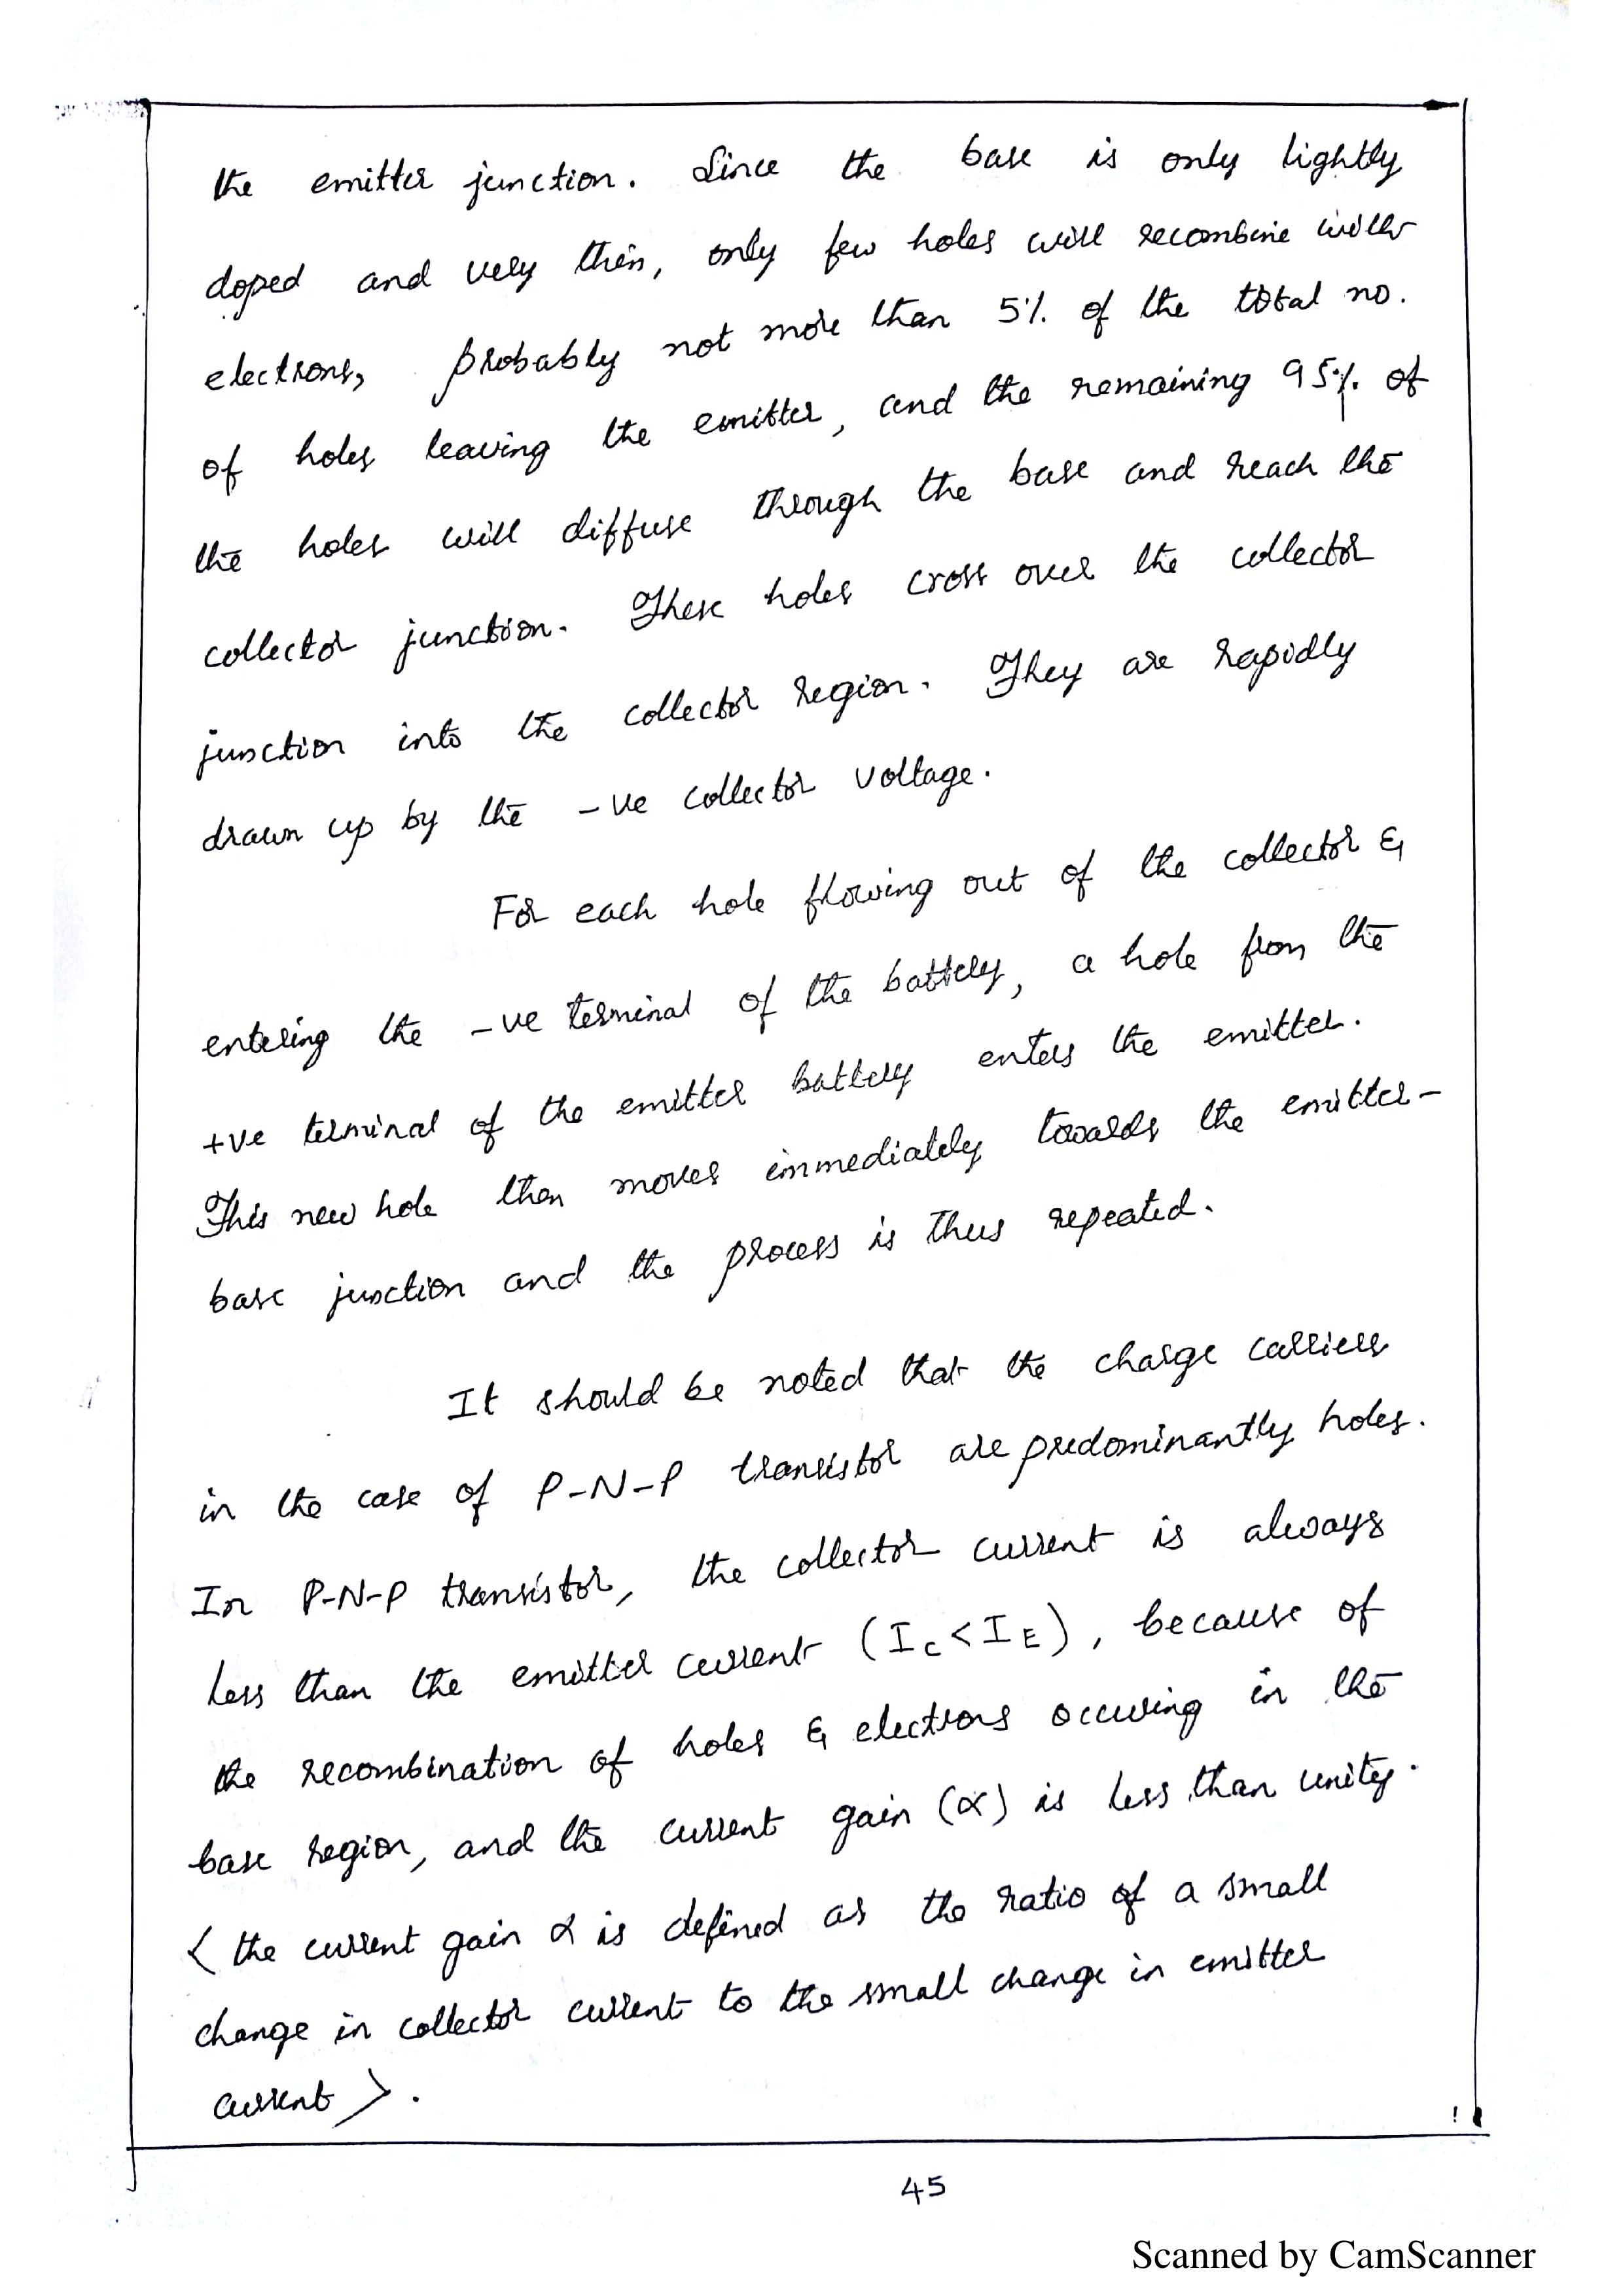 the emitter junction. Since the base is only lightly
doped and very thin, only few holes will recombine with
electrons, probably not more than 5% of the total no.
of holes leaving the emitter, and the remaining 95% of
the holes will diffuse through the base and reach the
collector junction. These holes cross over the collector
junction into the collector region. They are rapidly
drawn up by the -ve collector voltage.
For each hole flowing out of the collector &
entering the -ve terminal of the battery, a hole from the
+ve terminal of the emitter battery enters the emitter.
This new hole then moves immediately towards the emitter-
base junction and the process is thus repeated.
It should be noted that the charge carriers
in the case of P-N-P transistor are predominantly holes.
In P-N-P transistor, the collector current is always
less than the emitter current (I_C < I_E), because of
the recombination of holes & electrons occuring in the
base region, and the current gain (α) is less than unity.
< the current gain α is defined as the ratio of a small
change in collector current to the small change in emitter
current >.
45
Scanned by CamScanner